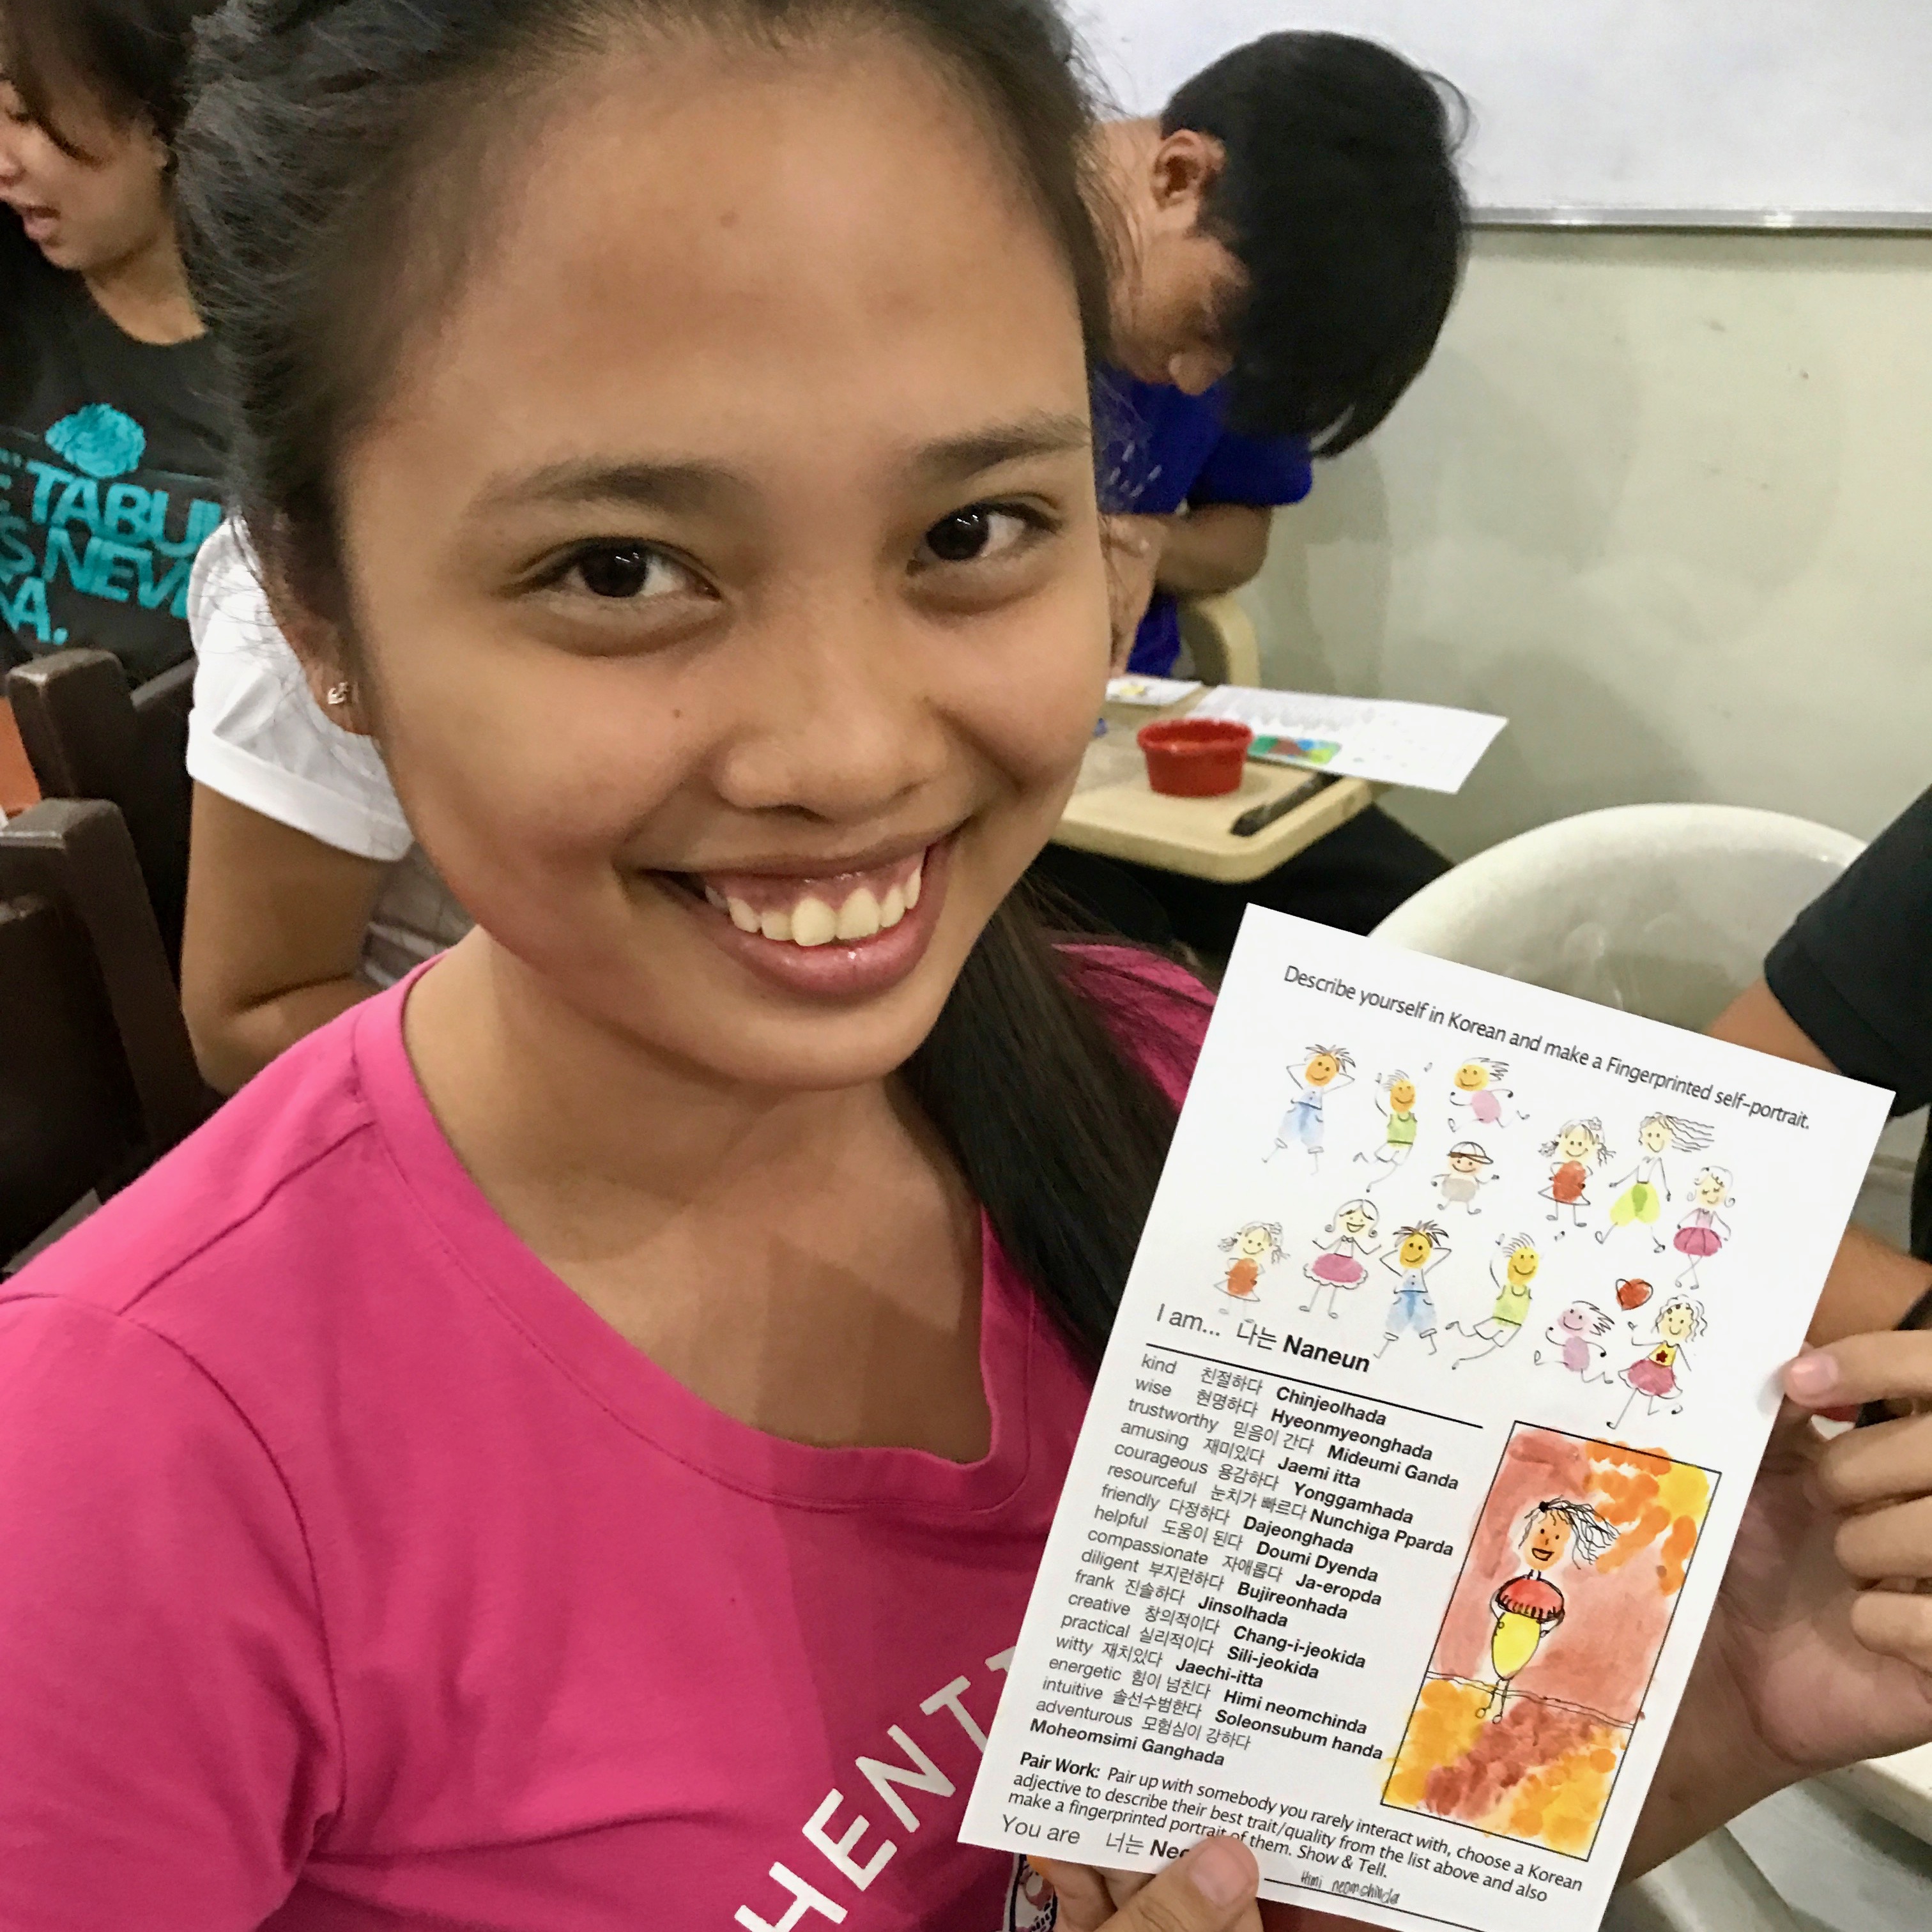 TABU
NEV
A.
HENT
Describe yourself in Korean and make a Fingerprinted self-portrait.
I am... 나는 Naneun
kind 친절하다 Chinjeolhada
wise 현명하다 Hyeonmyeonghada
trustworthy 믿음이 간다 Mideumi Ganda
amusing 재미있다 Jaemi itta
courageous 용감하다 Yonggamhada
resourceful 눈치가 빠르다 Nunchiga Pparda
friendly 다정하다 Dajeonghada
helpful 도움이 된다 Doumi Dyenda
compassionate 자애롭다 Ja-eropda
diligent 부지런하다 Bujireonhada
frank 진솔하다 Jinsolhada
creative 창의적이다 Chang-i-jeokida
practical 실리적이다 Sili-jeokida
witty 재치있다 Jaechi-itta
energetic 힘이 넘친다 Himi neomchinda
intuitive 솔선수범한다 Soleonsubum handa
adventurous 모험심이 강하다
Moheomsimi Ganghada
Pair Work: Pair up with somebody you rarely interact with, choose a Korean
adjective to describe their best trait/quality from the list above and also
make a fingerprinted portrait of them. Show & Tell.
You are 너는 Ne
Himi neomchinda